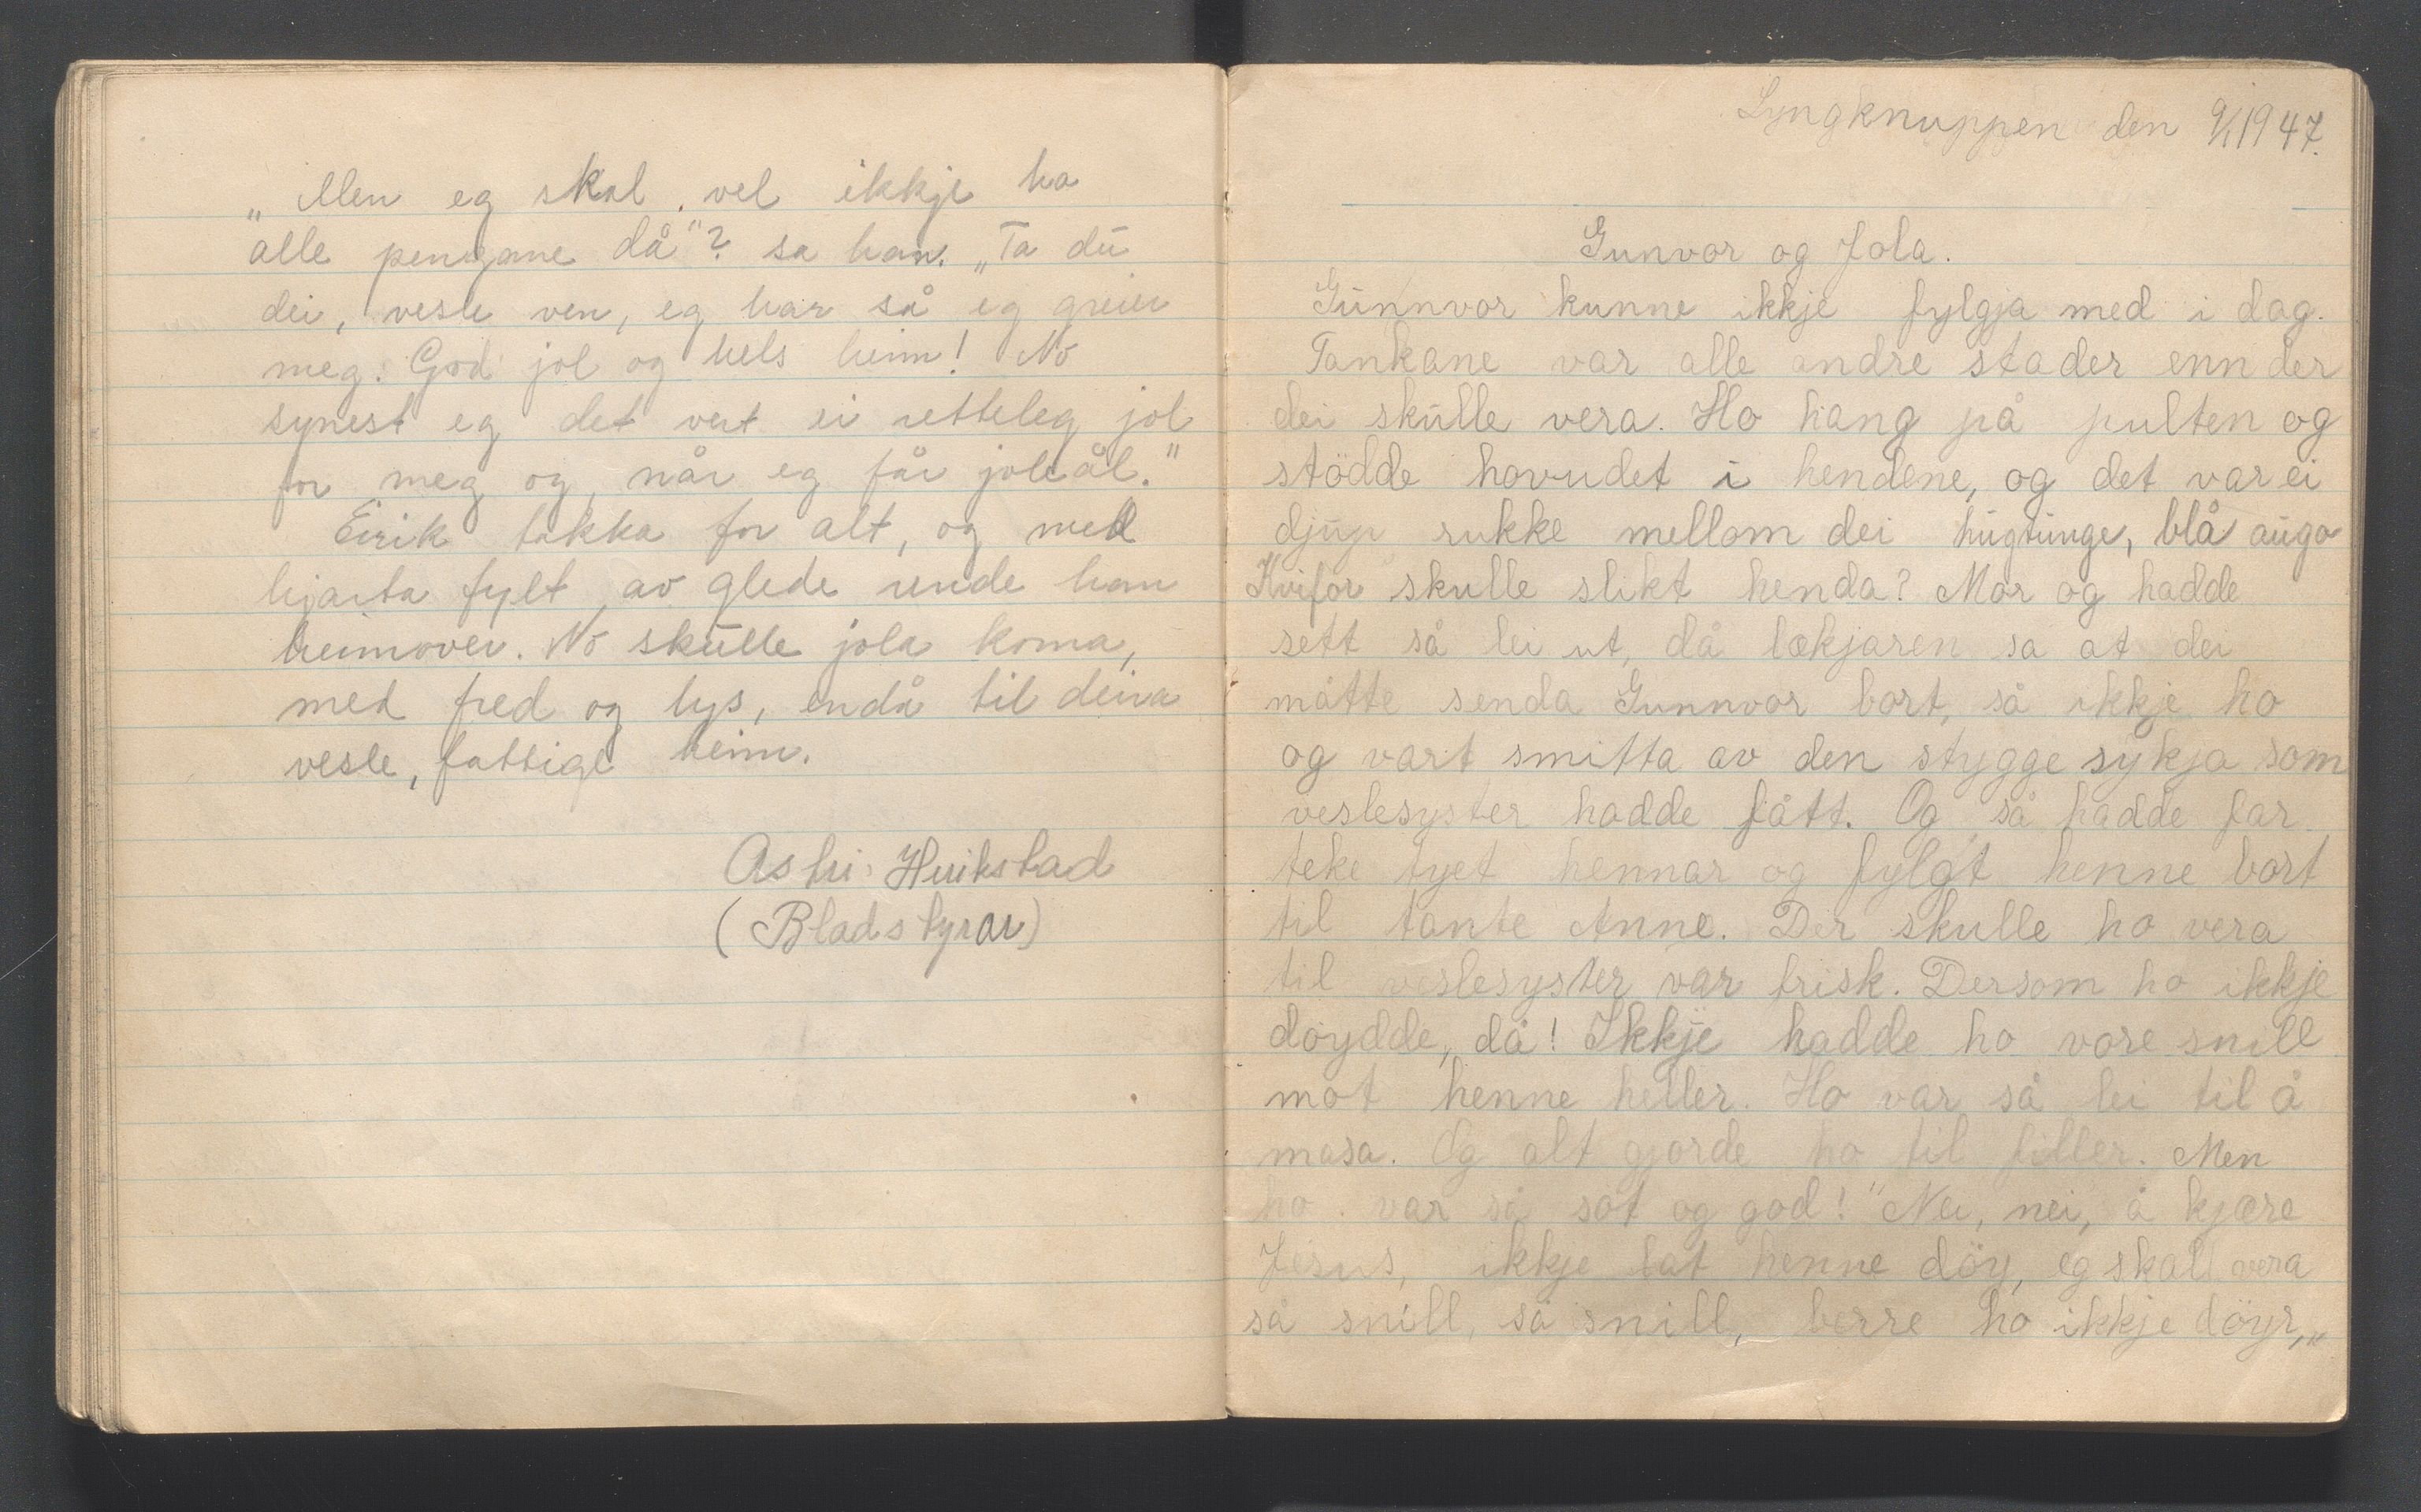 „Men eg skal vel ikkje ha
alle pengane då"? sa han. „Ta du
dei, vesle ven, eg har så eg greier
meg. God jol og hels heim! No
synest eg det vert ei retteleg jol
for meg og, når eg får joleål."
Eirik takka for alt, og med
hjarta fylt av glede rende han
heimover. No skulle jola koma,
med fred og lys, endå til deira
vesle, fattige heim.
Astri Huikstad
(Bladstyrar)
Lyngknuppen den 9/1 1947.
Gunvor og Jola.
Gunnvor kunne ikkje fylgja med i dag.
Tankane var alle andre stader enn der
dei skulle vera. Ho hang på pulten og
stödde hovudet i hendene, og det var ei
djup rukke mellom dei hugtunge, blå augo
Kvifor skulle slikt henda? Mor og hadde
sett så lei ut, då lækjaren sa at dei
måtte senda Gunnvor bort, så ikkje ho
og vart smitta av den stygge sykja som
veslesyster hadde fått. Og så hadde far
teke tyet hennar og fylgt henne bort
til tante Anne. Der skulle ho vera
til veslesyster var frisk. Dersom ho ikkje
döydde, då! Ikkje hadde ho vore snill
mot henne heller. Ho var så lei til å
masa. Og alt gjorde ho til filler. Men
ho var så söt og god! "Nei, nei, å kjære
Jesus, ikkje lat henne döy, eg skal vera
så snill, så snill, berre ho ikkje döyr,"